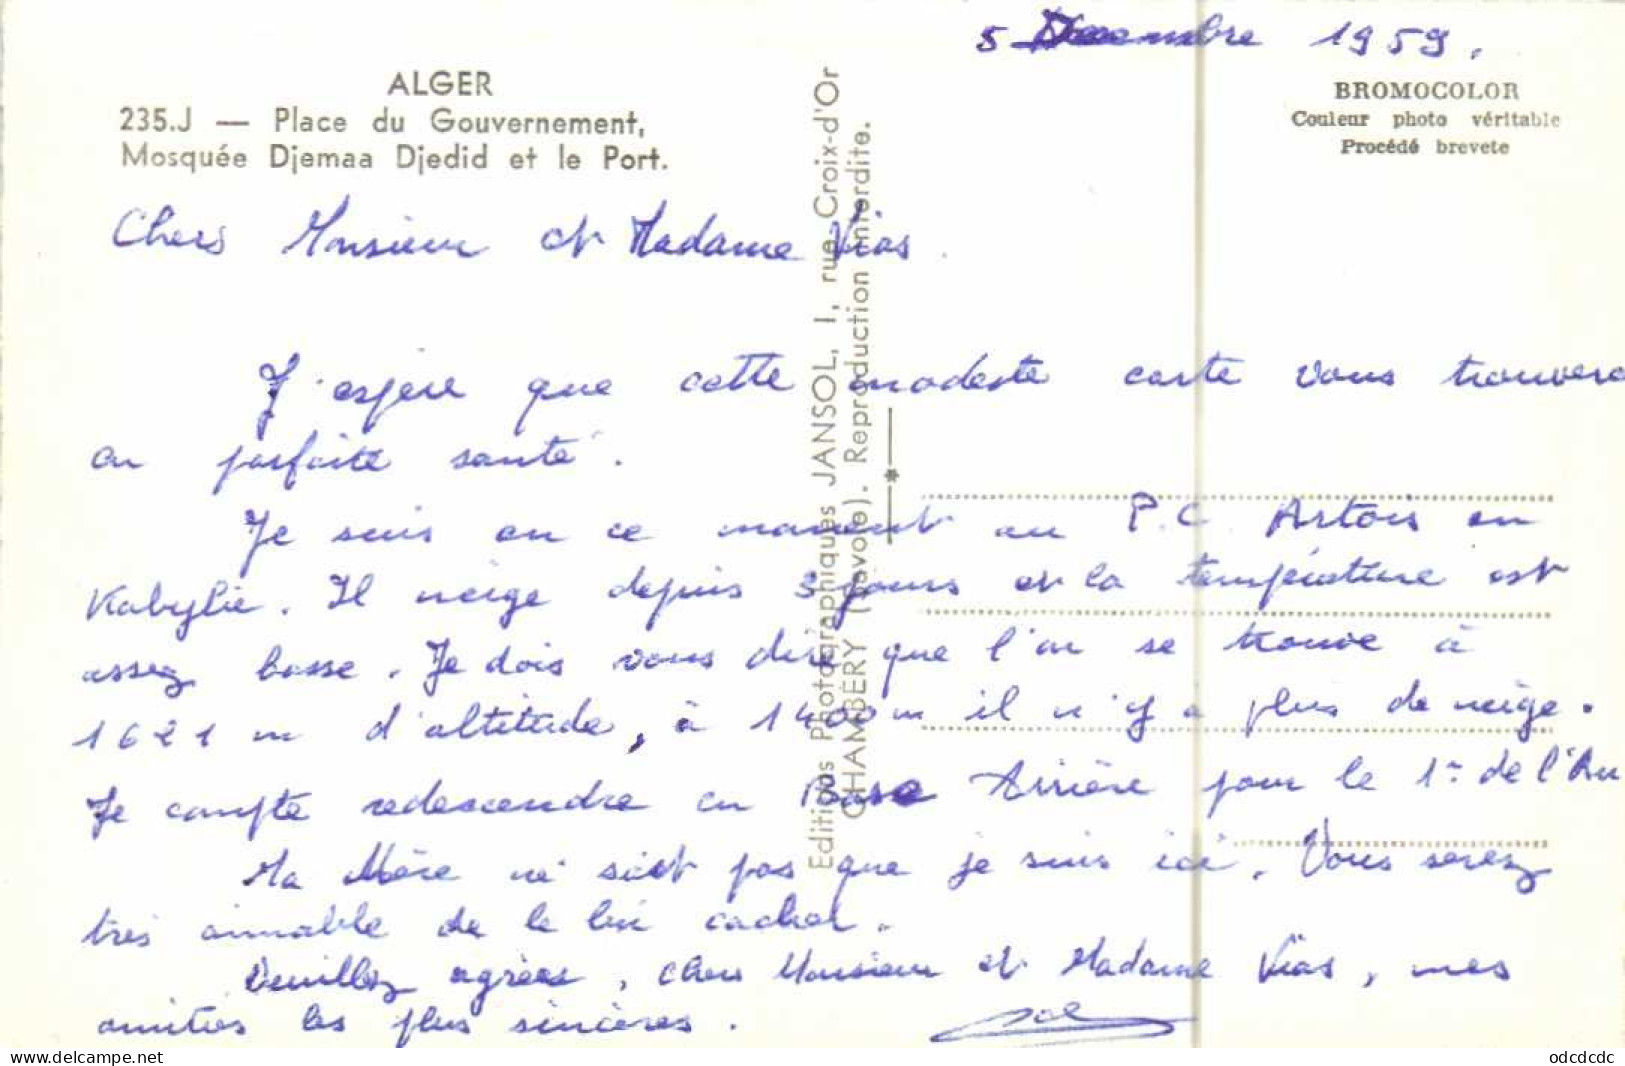 5 Décembre 1959.
ALGER
235.J — Place du Gouvernement,
Mosquée Djemaa Djedid et le Port.
BROMOCOLOR
Couleur photo véritable
Procédé brevete
Editions Photographiques JANSOL, 1, rue Croix-d'Or
CHAMBÉRY (Savoie). Reproduction interdite.
Chers Monsieur et Madame Vias.
J'espère que cette modeste carte vous trouvera
en parfaite santé.
Je suis en ce moment au P.C Artois en
Kabylie. Il neige depuis 3 jours et la température est
assez basse. Je dois vous dire que l'on se trouve à
1621 m d'altitude, à 1400 m il n'y a plus de neige.
Je compte redescendre en Base Arrière pour le 1er de l'An
Ma Mère ne sait pas que je suis ici. Vous serez
très aimable de le lui cacher.
Veuillez agréer, chers Monsieur et Madame Vias, mes
amitiés les plus sincères.
delcampe.net
odcdcdc